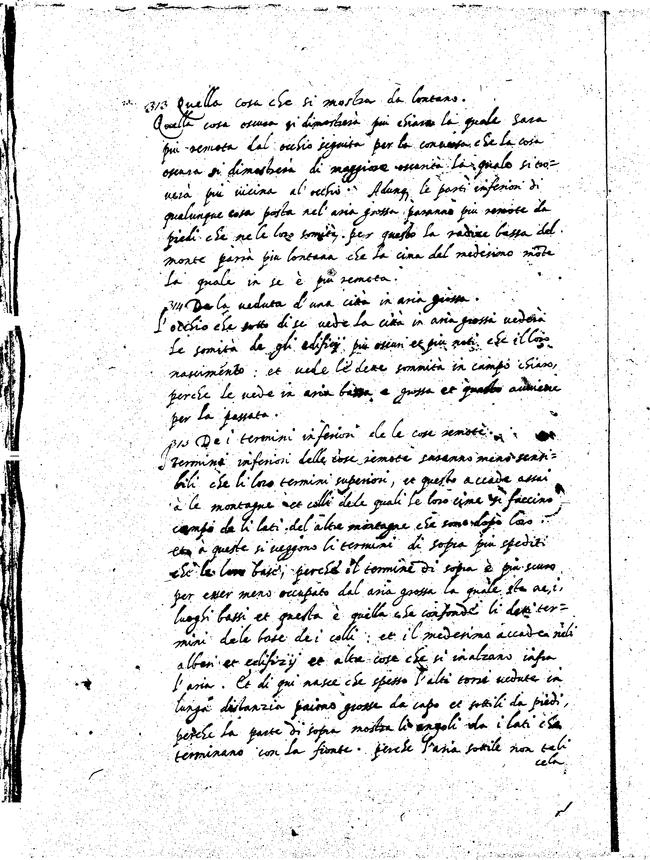 313 Quella cosa che si mostra da lontano.
Quella cosa oscura si dimosterà piu chiara la quale sara
piu remota dal occhio seguita per la conversa che la cosa
oscura si dimosterà di maggiore oscurita la quale si tro=
verà piu vicina al occhio. Adunq le parti inferiori di
qualunque cosa posta nel'aria grossa paranno piu remote da
piedi che ne le loro somità, per questo la radice bassa del
monte parrà piu lontana che la cima del medesimo mote
la quale in se è piu remota.
314 De la veduta d'una città in aria grossa.
L'occhio che sotto di se vede la città in aria grossa vederà
le somità de gli edifizij piu oscuri et piu noti che il loro
nascimento: et vede le dette sommità in campo chiaro,
perche le vede in aria bassa e grossa et questo aviene
per la passata.
315 De i termini inferiori de le cose remote.
I termini inferiori delle cose remote saranno meno sensi=
bili che li loro termini superiori, et questo accade assai
à le montagne et colli dele quali le loro cime si faccino
campo de li lati del'altre montagne che sono dopo loro:
et à queste si veggono li termini di sopra piu spediti
che le loro base, perche il termine di sopra è piu scuro
per esser meno occupato dal aria grossa la quale sta ne i
luoghi bassi et questa è quella che confonde li detti ter=
mini dele base de i colli: et il medesimo accade neli
alberi et edifizij et altre cose che si inalzano infra
l'aria. Et di qui nasce che spesso l'alti torri vedute in
lunga distanzia paiono grosse da capo et sottili da piedi,
perche la parte di sopra mostra li angoli da i lati che
terminano con la fronte. perche l'aria sottile non teli
cela